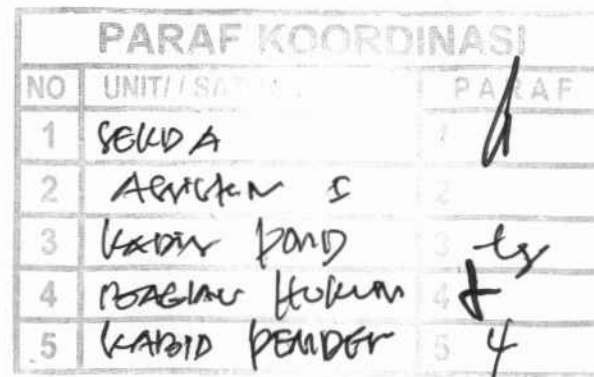 PARAF KOORDINASI
NO UNIT/ / SAT PARAF
1 SEKDA 1
2 Asisten I 2
3 KADIN 3
4 BAGIAN HUKUM 4
5 KABID 5